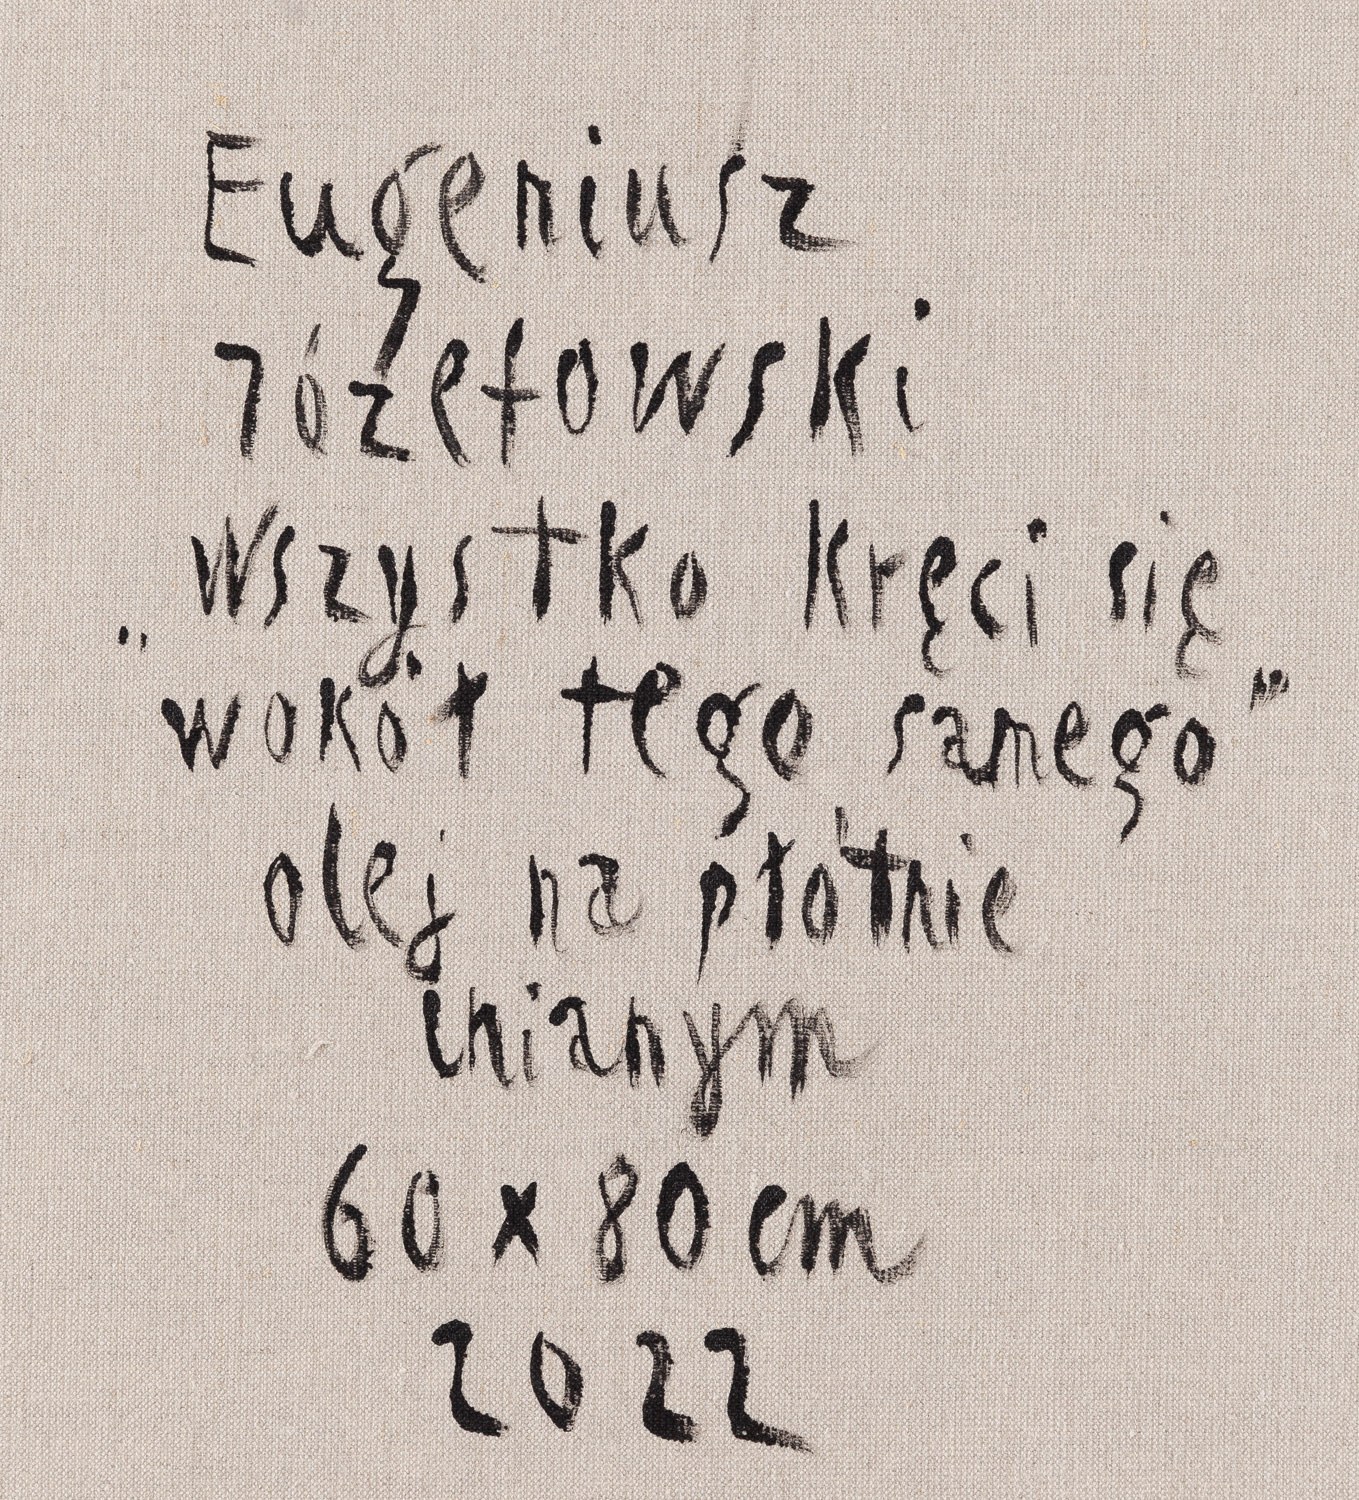 Eugeniusz
Józefowski
„Wszystko kręci się
wokół tego samego”
olej na płótnie
lnianym
60 x 80 cm
2022